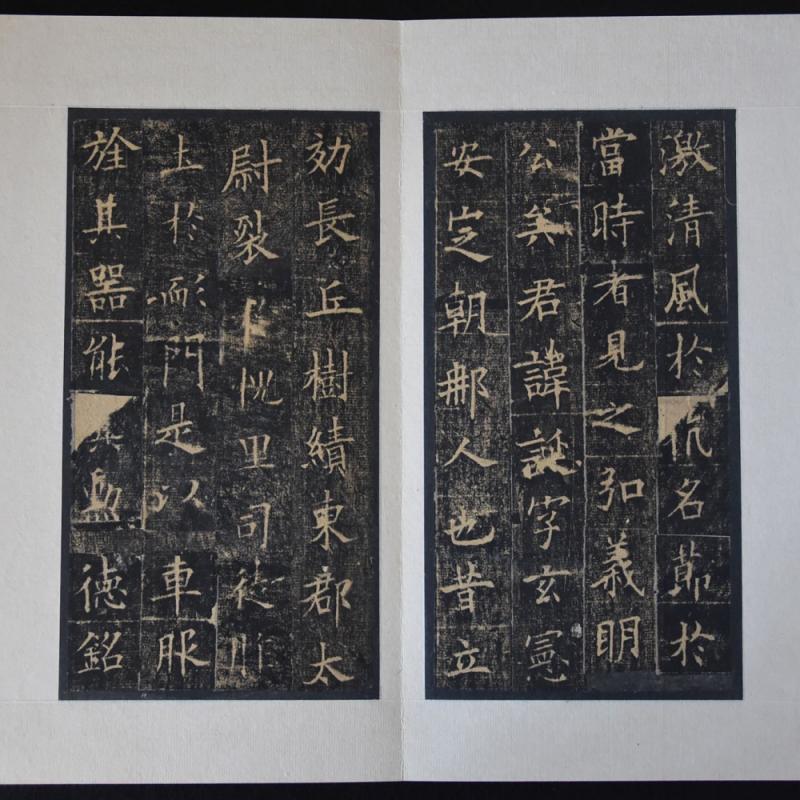 激清風於抗名節於
當時者見之弘義明
公矣君諱誕字玄憲
安定朝那人也昔立
効長丘樹績東郡太
尉裂里司徒胙
土於耏門是以車服
旌其器能德銘